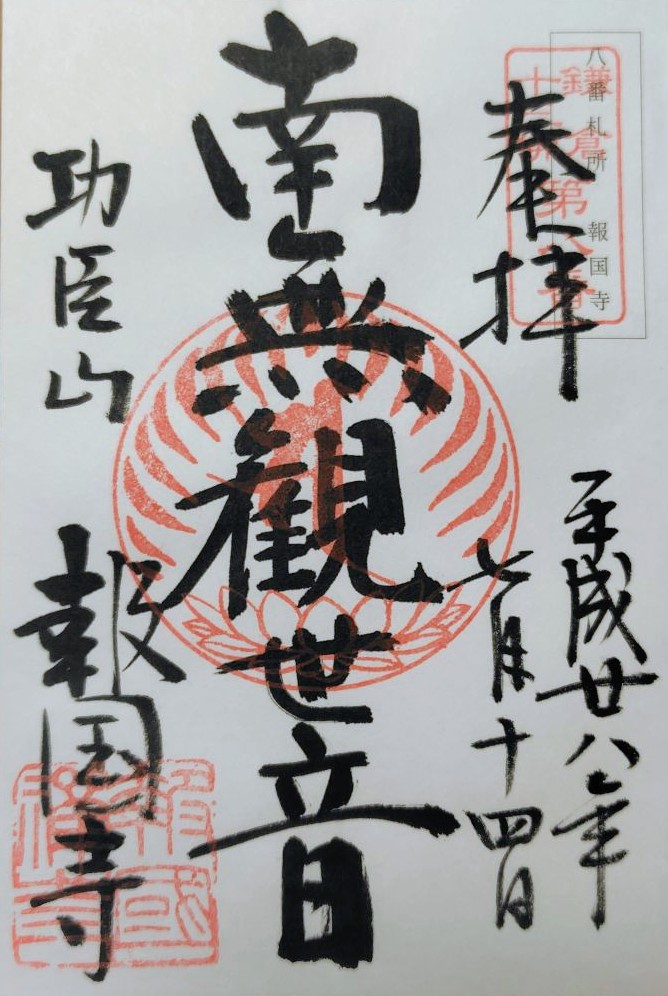 八番札所 報国寺
鎌倉
十三佛第八番
奉拝
平成廿八年
七月十四日
南無観世音
功臣山
報国寺